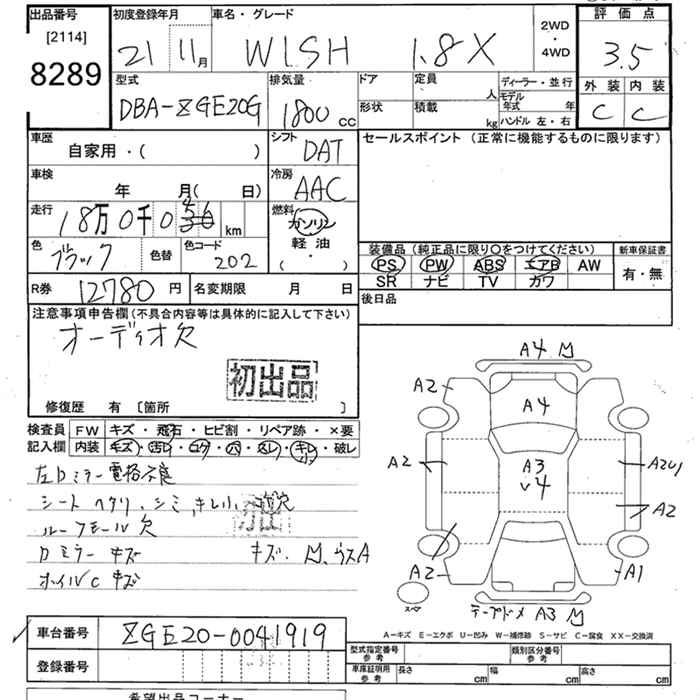 出品番号 初度登録年月 車名・グレード 2WD・4WD 評価点
[2114] 21 11月 WISH 1.8X 3.5
8289 外装 内装
型式 排気量 ドア 定員 人 ディーラー・並行
DBA-ZGE20G 1800cc 形状 積載 kg モデル年式 年 C C
ハンドル 左・右
車歴 シフト セールスポイント (正常に機能するものに限ります)
自家用・( ) DAT
車検 冷房
年 月( 日) AAC
走行 燃料
18万0千0 km ガソリン
色 色替 色コード 軽油
ブラック 202 ( ・ )
装備品 (純正品に限り○をつけてください) 新車保証書
PS PW ABS エアB AW 有・無
SR ナビ TV カワ
R券 12780円 名変期限 月 日 後日品
注意事項申告欄(不具合内容等は具体的に記入して下さい)
オーディオ欠
初出品
修復歴 有 [箇所 ]
検査員 FW キズ・飛石・ヒビ割・リペア跡・×要
記入欄 内装 キズ・汚レ・コゲ・穴・スレ・キレ・破レ
左ドミラー電格不良
シート ヘタリ、シミ、キレ小
ルーフモール欠
ドミラー キズ
ホイルC キズ
A4
A2
A4
A2 A3
4
A2
A2 A1
テープドメ A3
スペア
A-キズ E-エクボ U-凹み W-補修跡 S-サビ C-腐食 XX-交換済
車台番号 ZGE20-0041919
型式指定番号 参考 類別区分番号 参考
登録番号 車庫証明用 参考 長さ cm 幅 cm 高さ cm
希望出品コーナー